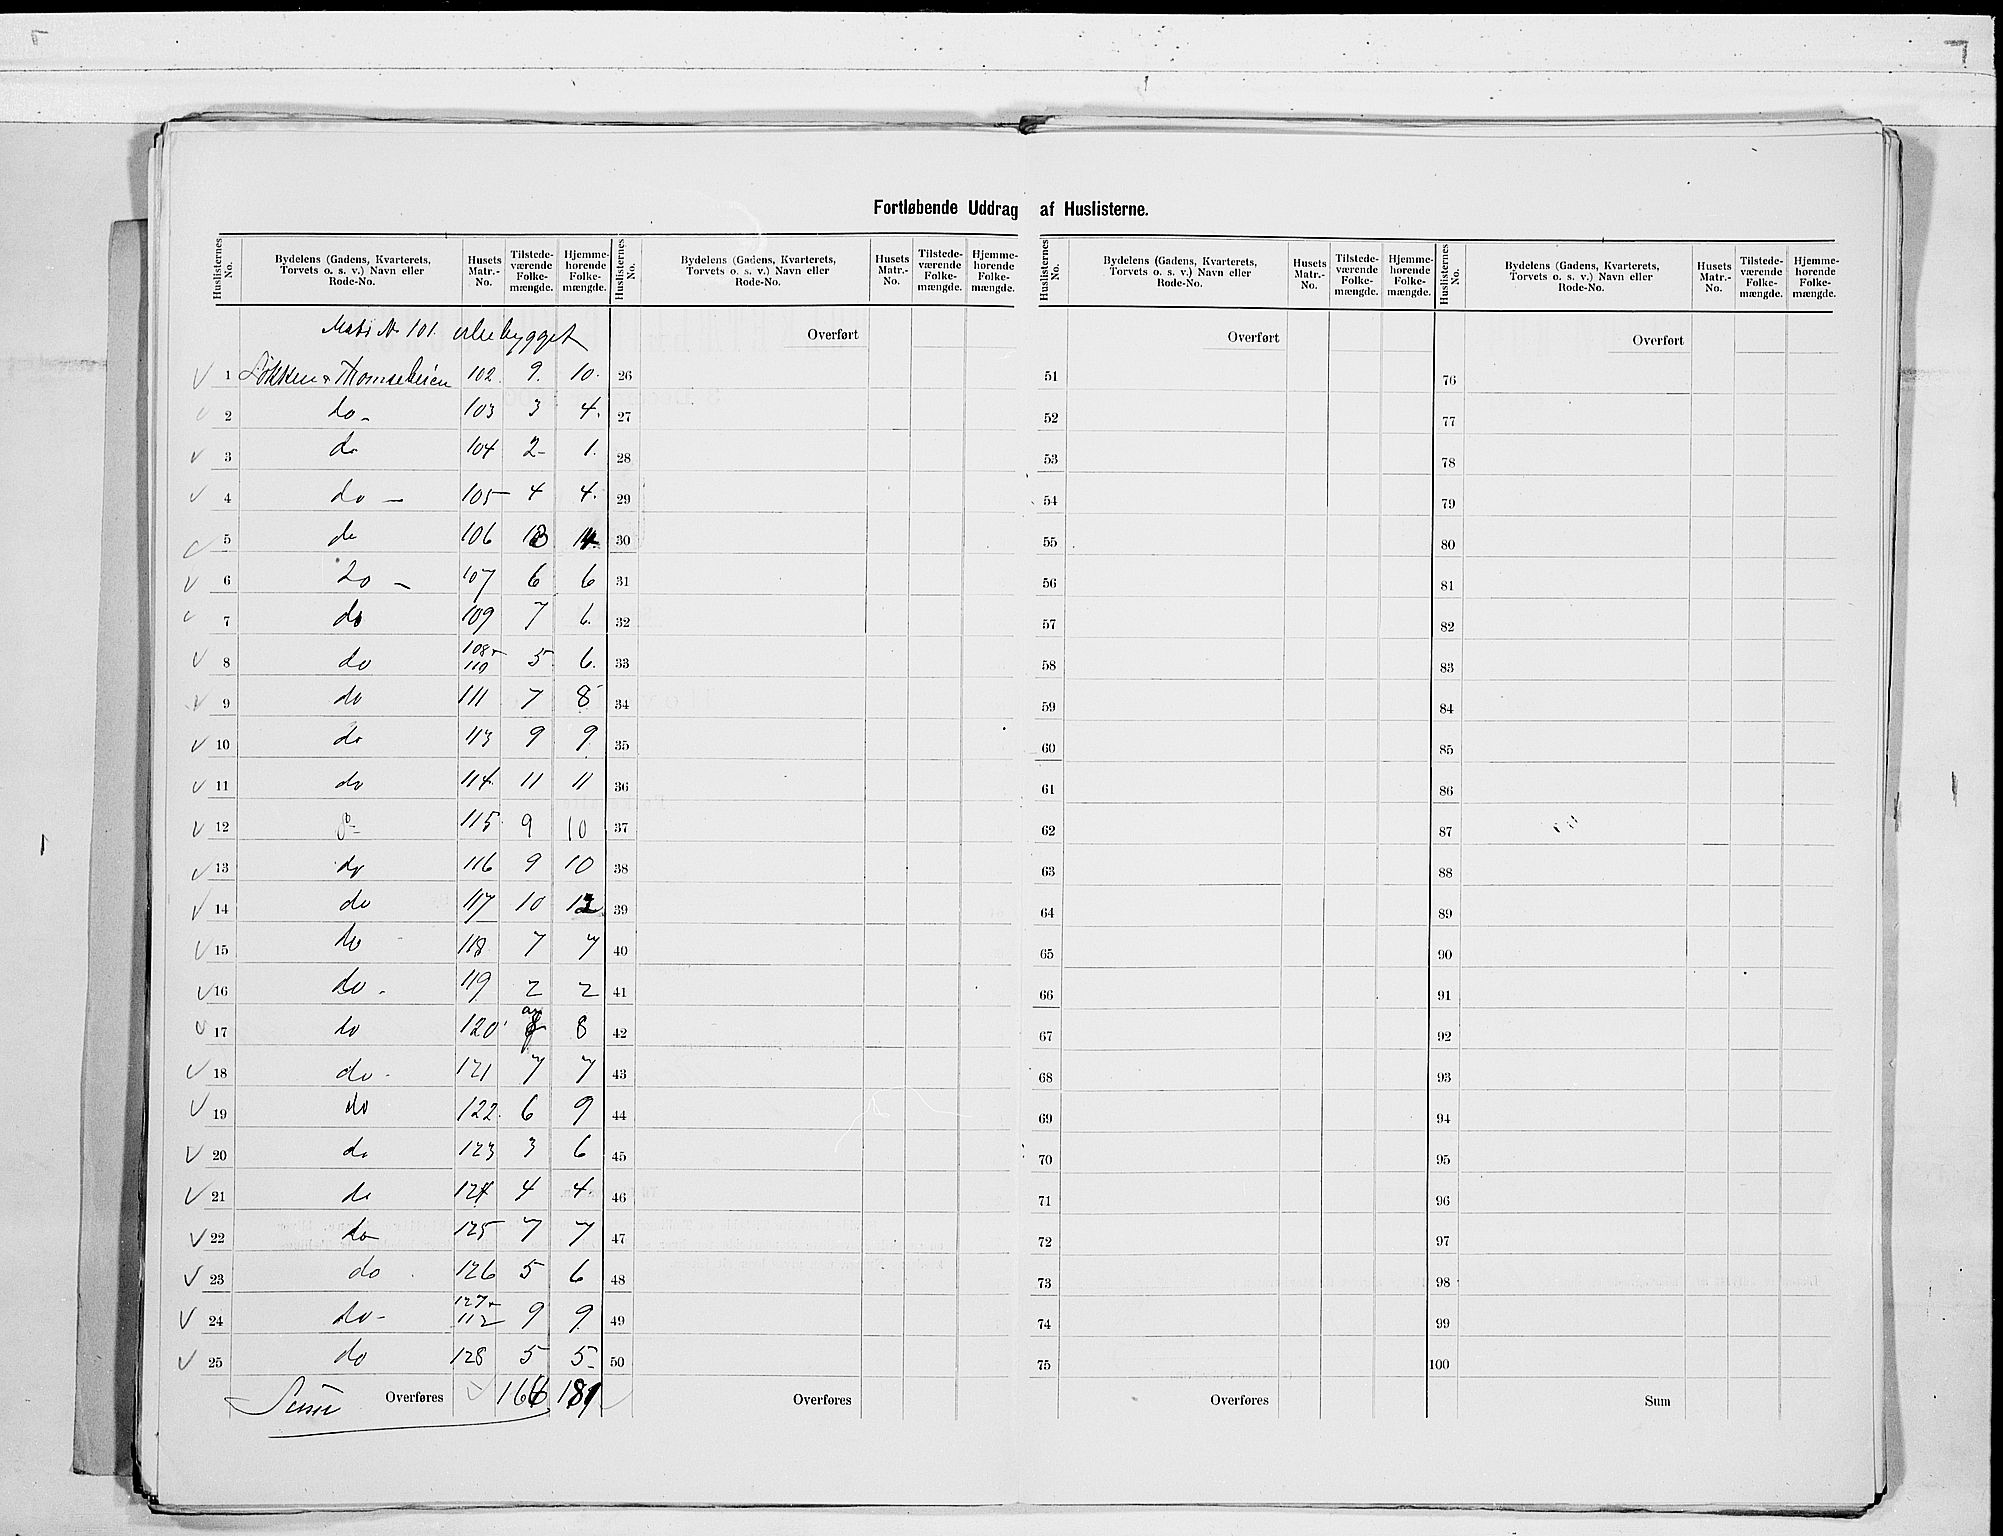 Fortløbende Uddrag af Huslisterne.
Huslisternes No. Bydelens (Gadens, Kvarterets, Torvets o. s. v.) Navn eller Rode-No. Husets Matr.-No. Tilstedeværende Folkemængde. Hjemmehorende Folkemængde. Huslisternes No. Bydelens (Gadens, Kvarterets, Torvets o. s. v.) Navn eller Rode-No. Husets Matr.-No. Tilstede-værende Folke-mængde. Hjemme-horende Folke-mængde. Huslisternes No. Bydelens (Gadens, Kvarterets, Torvets o. s. v.) Navn eller Rode-No. Husets Matr.-No. Tilstede-værende Folke-mængde. Hjemme-horende Folke-mængde. Huslisternes No. Bydelens (Gadens, Kvarterets, Torvets o. s. v.) Navn eller Rode-No. Husets Matr.-No. Tilstede-værende Folke-mængde. Hjemme-horende Folke-mængde.
Matr No 101. ubebygget Overført Overført Overført
1 Løkken & Thomsebeien 102 9. 10. 26 51 76
2 do - 103 3 4. 27 52 77
3 do 104 2- 1. 28 53 78
4 do - 105 4 4. 29 54 79
5 do 106 30 55 80
6 do - 107 6 6 31 56 81
7 do 109 7 6. 32 57 82
8 do 108+ 110 5 6. 33 58 83
9 do 111 7 8 34 59 84
10 do 113 9 9 35 60 85
11 do 114. 11 11 36 61 86
12 do- 115 9 10 37 62 87
13 do 116 9 10 38 63 88
14 do 117 10 39 64 89
15 do 118 7 7 40 65 90
16 do - 119 2 2 41 66 91
17 do 120 8 42 67 92
18 do - 121 7 7 43 68 93
19 do 122 6 9 44 69 94
20 do 123 3 6 45 70 95
21 do 124 4 4 46 71 96
22 do 125 7 7 47 72 97
23 do 126 5 6 48 73 98
24 do- 127+ 112 9 9 49 74 99
25 do 128 5 5- 50 75 100
Sum Overføres 166 181 Overføres Overføres Sum